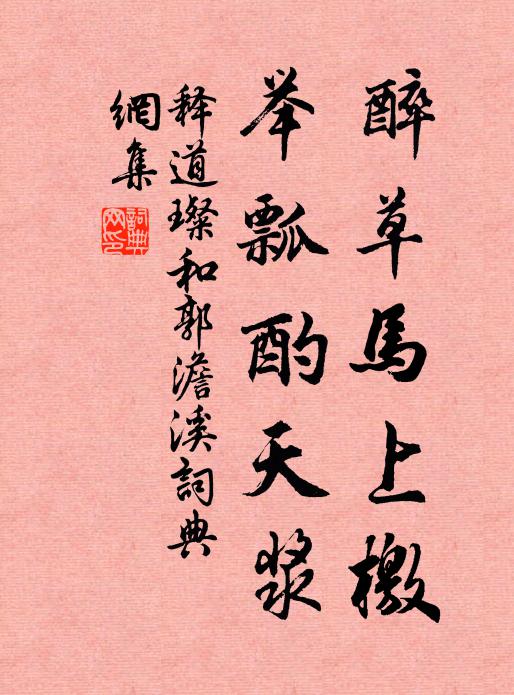 醉草馬上檄
举瓢酌天浆
释道璨和郭澹溪詞典
網集
詞典網印